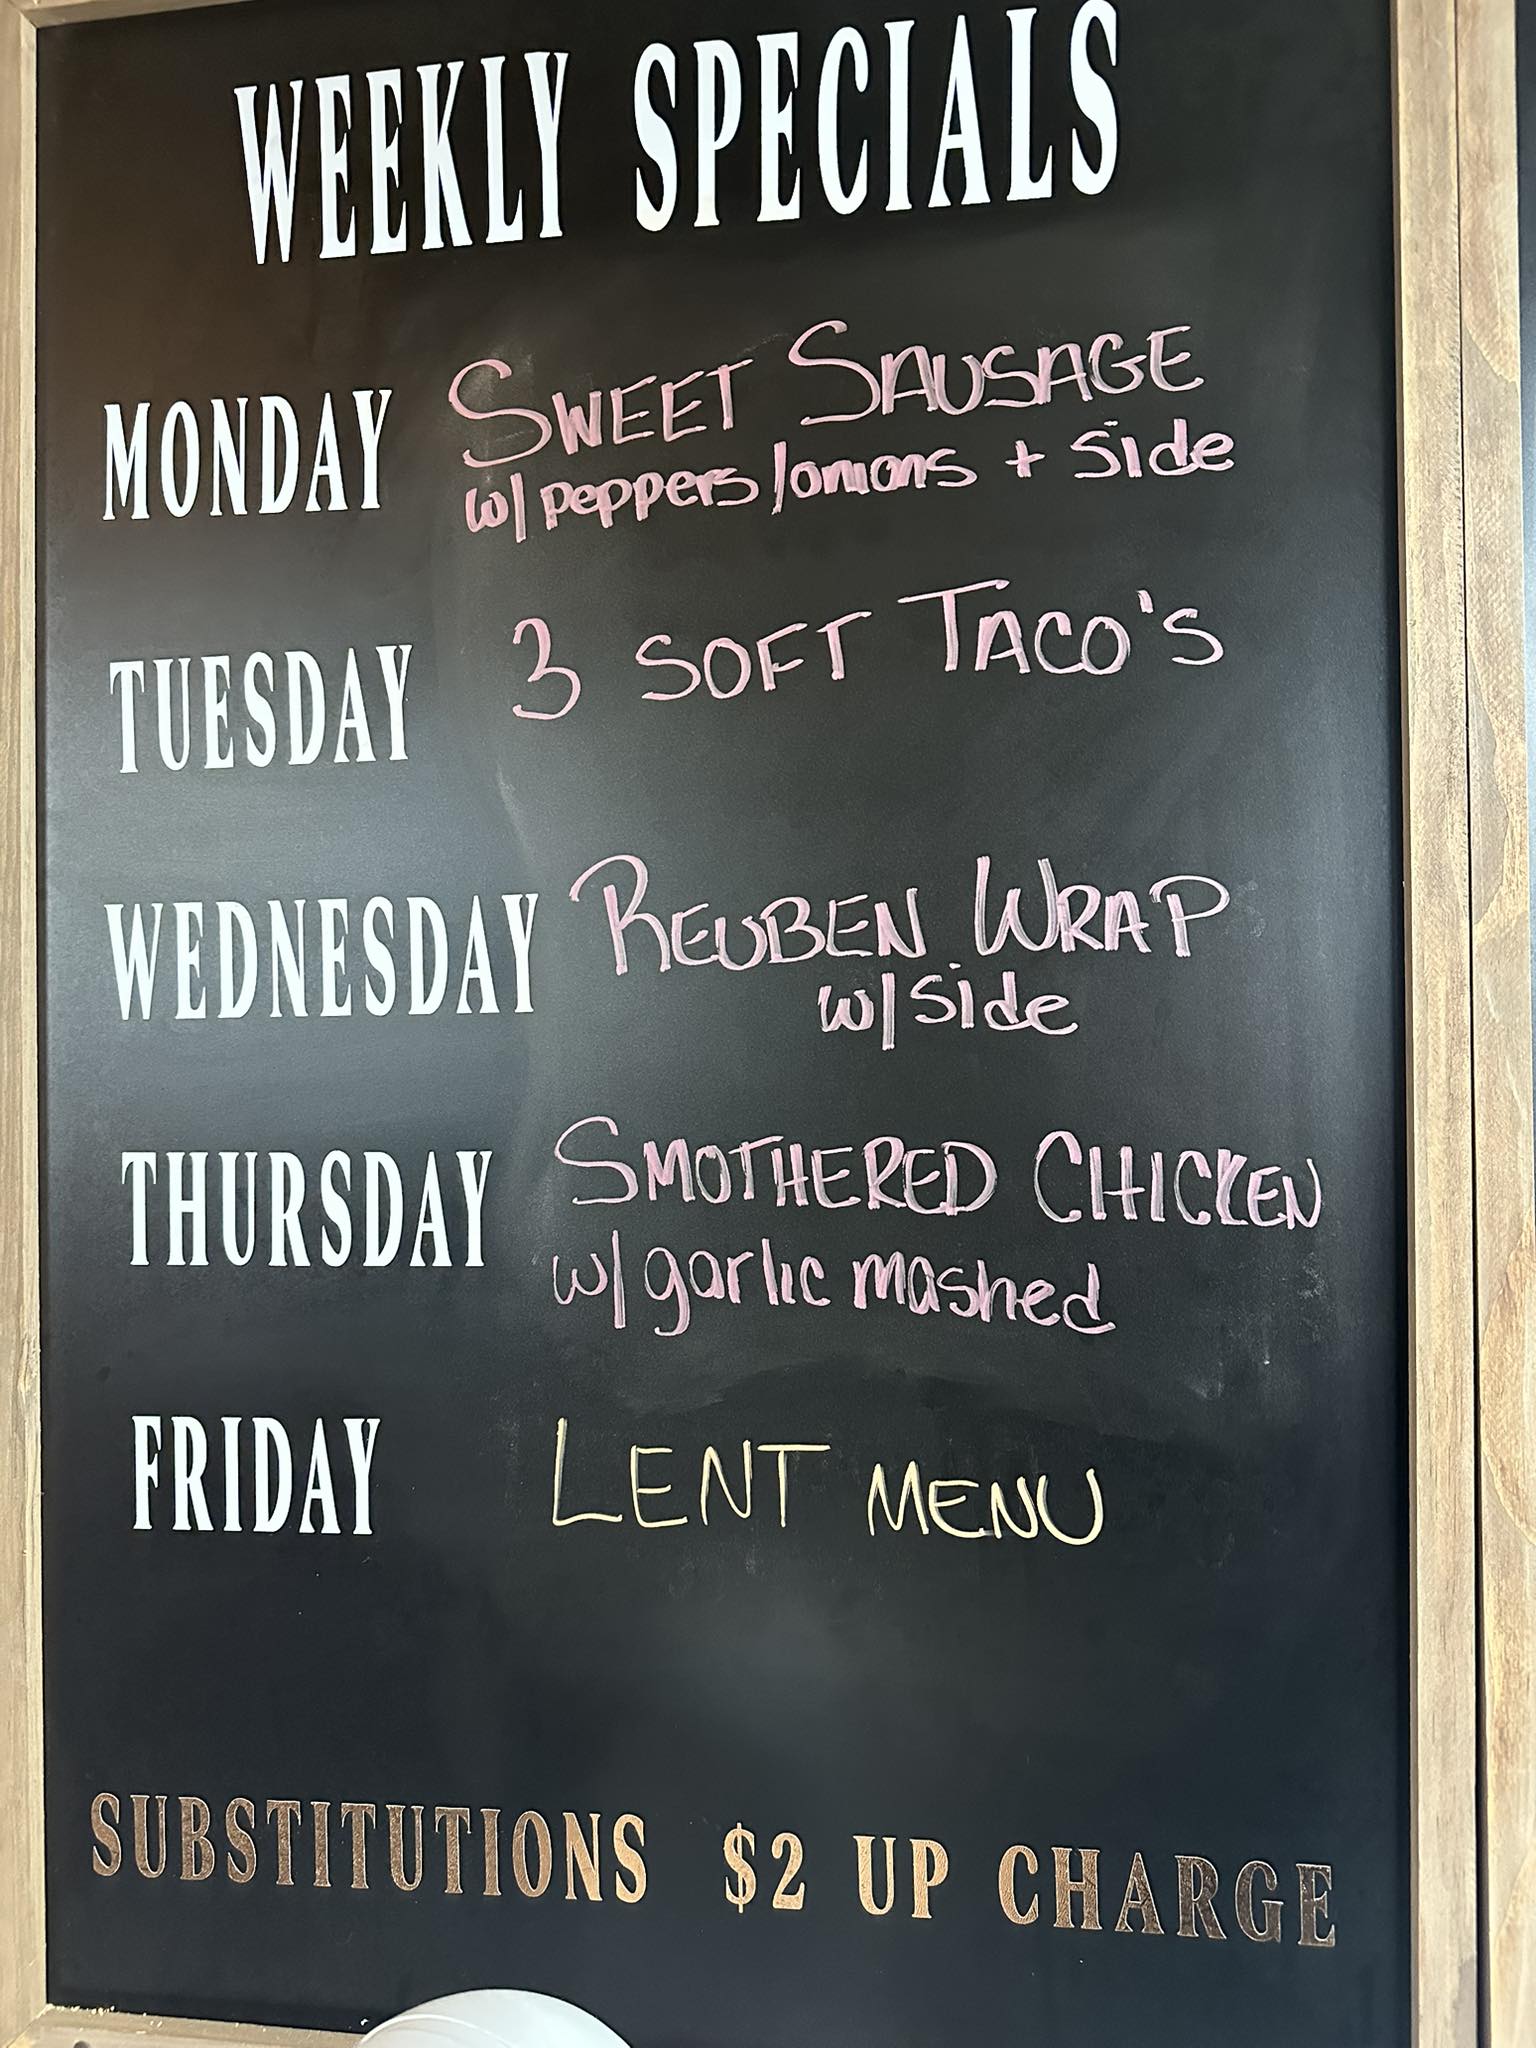 WEEKLY SPECIALS
MONDAY SWEET SAUSAGE
w/ peppers/onions + side
TUESDAY 3 SOFT TACO'S
WEDNESDAY REUBEN WRAP
w/ side
THURSDAY SMOTHERED CHICKEN
w/ garlic mashed
FRIDAY LENT MENU
SUBSTITUTIONS $2 UP CHARGE